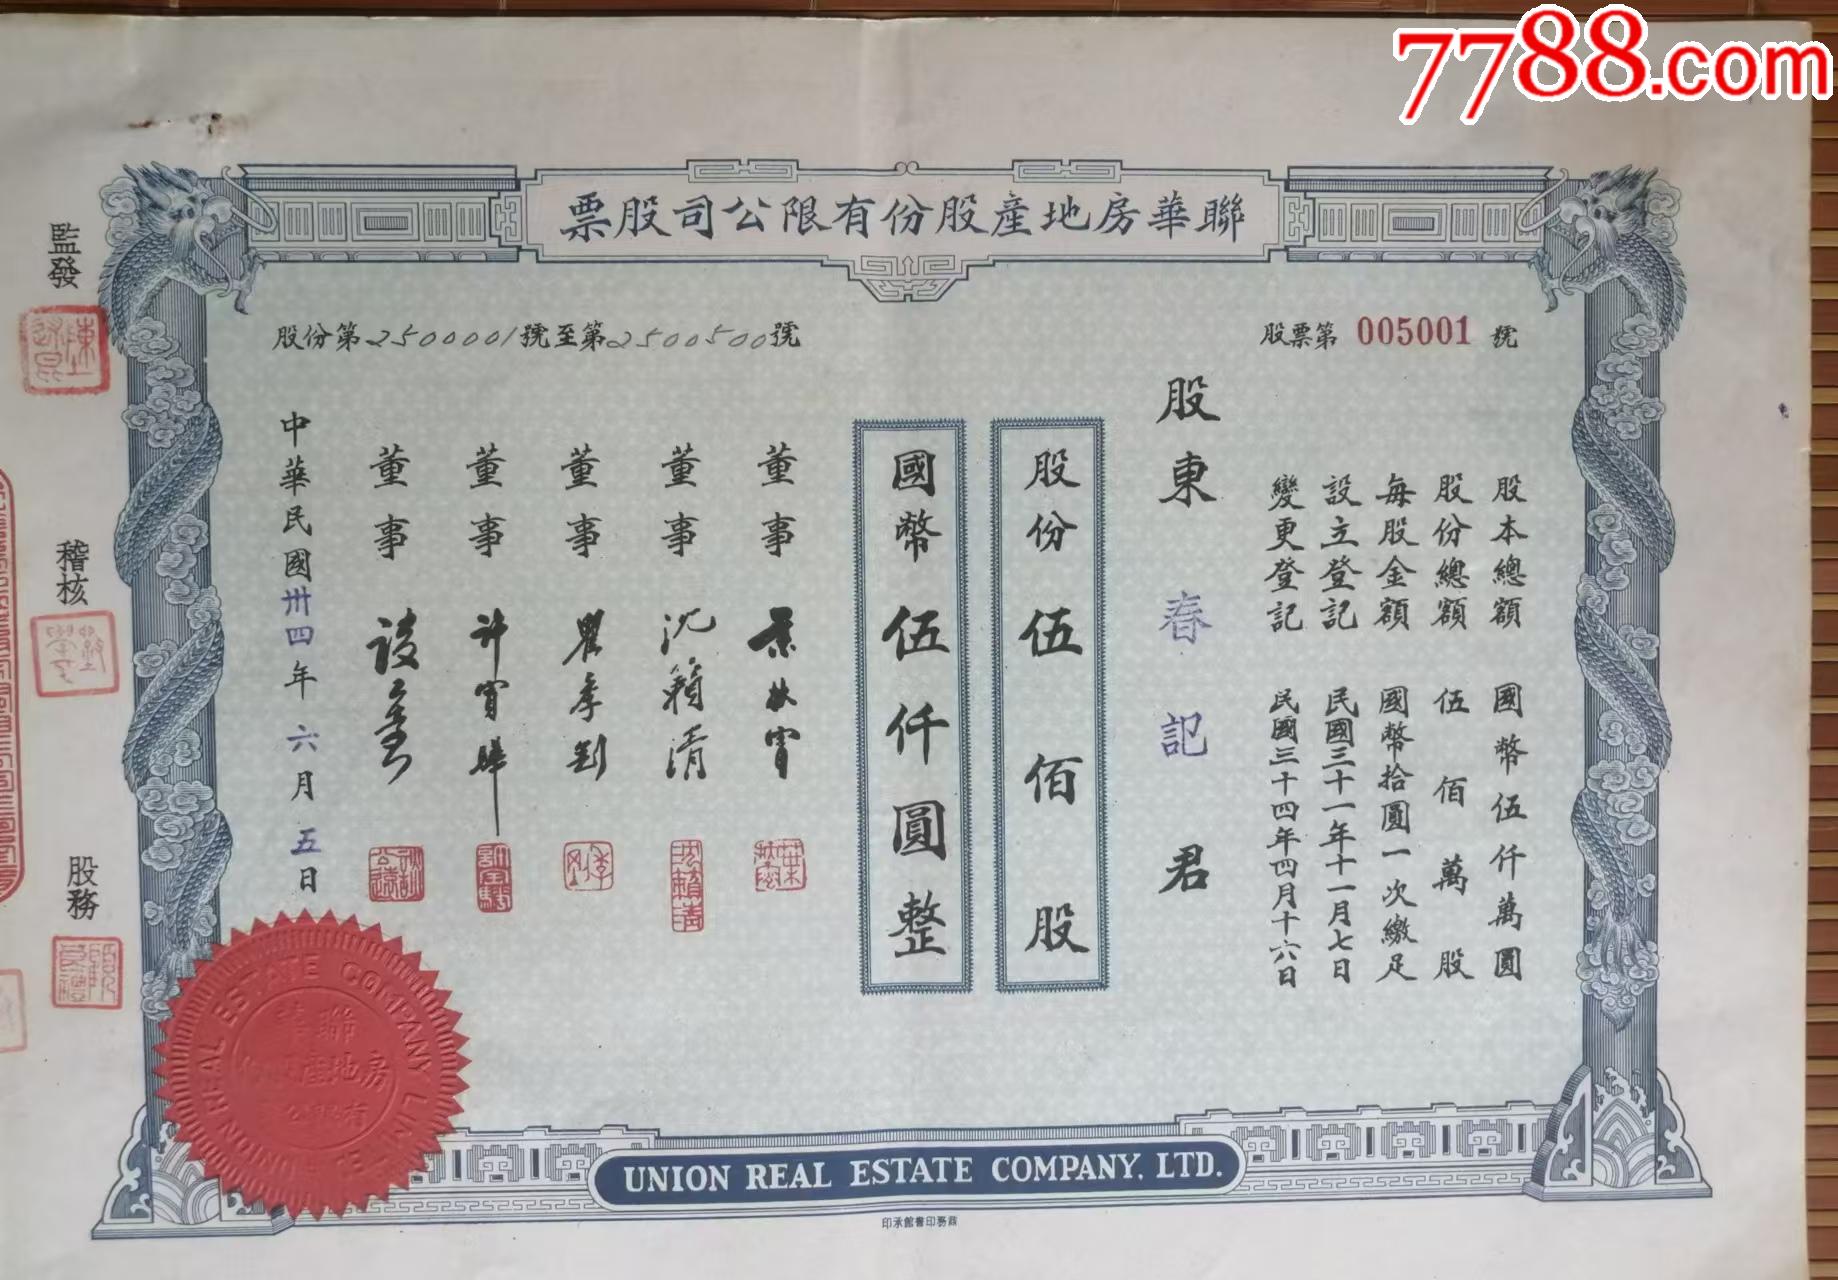 7788.com
聯華房地產股份有限公司股票
股票第 005001 號
股份第2500001號至第2500500號
股本總額 國幣伍仟萬圓
股份總額 伍佰萬股
每股金額 國幣拾圓一次繳足
設立登記 民國三十一年十一月七日
變更登記 民國三十四年四月十六日
股東 春記 君
股份伍佰股
國幣伍仟圓整
董事
董事 沈籟清
董事
董事
董事
中華民國卅四年六月五日
監發
稽核
股務
UNION REAL ESTATE COMPANY LIMITED
聯華
房地產股份
有限公司
UNION REAL ESTATE COMPANY, LTD.
商務印書館承印